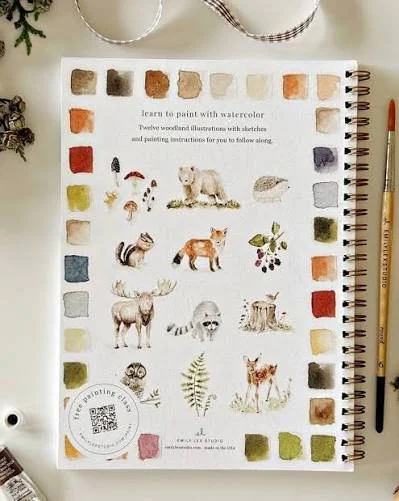 learn to paint with watercolor
Twelve woodland illustrations with sketches
and painting instructions for you to follow along.
free painting class
EMILY LEX STUDIO
emilylexstudio.com . made in the USA
EMILYLEXSTUDIO